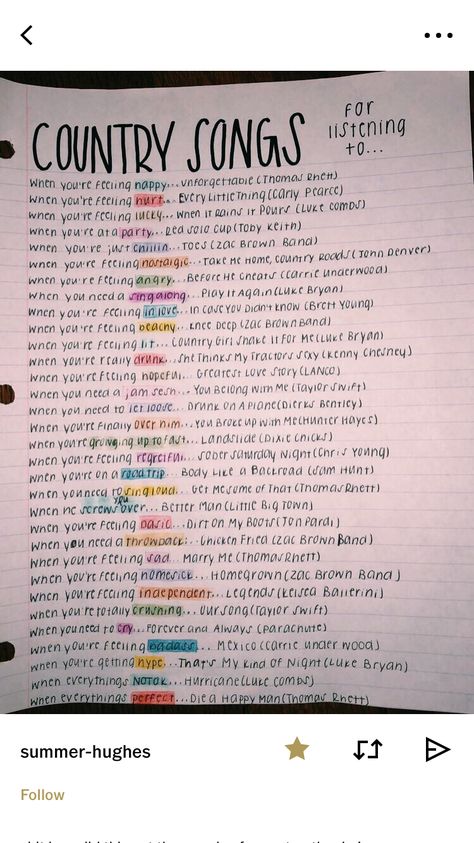 COUNTRY SONGS
FOR
listening
to...
When you're feeling happy... Unforgettable (Thomas Rhett)
When you're feeling hurt... Every Little Thing (Carly Pearce)
When you're feeling lucky... When it Rains it Pours (Luke Combs)
When you're at a party... Red Solo Cup (Toby Keith)
When you're just chillin... Toes (Zac Brown Band)
When you're feeling nostalgic... Take Me Home, Country Roads (John Denver)
When you're feeling angry... Before He Cheats (Carrie Underwood)
When you need a singalong... Play It Again (Luke Bryan)
When you're feeling in love... In Case You Didn't Know (Brett Young)
When you're feeling beachy... Knee Deep (Zac Brown Band)
When you're feeling lit... Country Girl Shake It For Me (Luke Bryan)
When you're really drunk... She Thinks My Tractors Sexy (Kenny Chesney)
When you're feeling hopeful... Greatest Love Story (LANCO)
When you need a jam sesh... You Belong With Me (Taylor Swift)
When you need to let loose... Drunk on a Plane (Dierks Bentley)
When you're finally over him... You Broke Up With Me (Hunter Hayes)
When you're growing up to fast... Landslide (Dixie Chicks)
When you're feeling regretful... Sober Saturday Night (Chris Young)
When you're on a road trip... Body Like a Backroad (Sam Hunt)
When you need to sing loud... Get Me Some of That (Thomas Rhett)
When he screws you over... Better Man (Little Big Town)
When you're feeling basic... Dirt on My Boots (Jon Pardi)
When you need a throwback... Chicken Fried (Zac Brown Band)
When you're feeling sad... Marry Me (Thomas Rhett)
When you're feeling homesick... Homegrown (Zac Brown Band)
When you're feeling independent... Legends (Kelsea Ballerini)
When you're totally crushing... Our Song (Taylor Swift)
When you need to cry... Forever and Always (Parachute)
When you're feeling badass... Mexico (Carrie Underwood)
When you're getting hype... That's My Kind of Night (Luke Bryan)
When everythings NOT OK... Hurricane (Luke Combs)
When everythings perfect... Die a Happy Man (Thomas Rhett)
summer-hughes
Follow